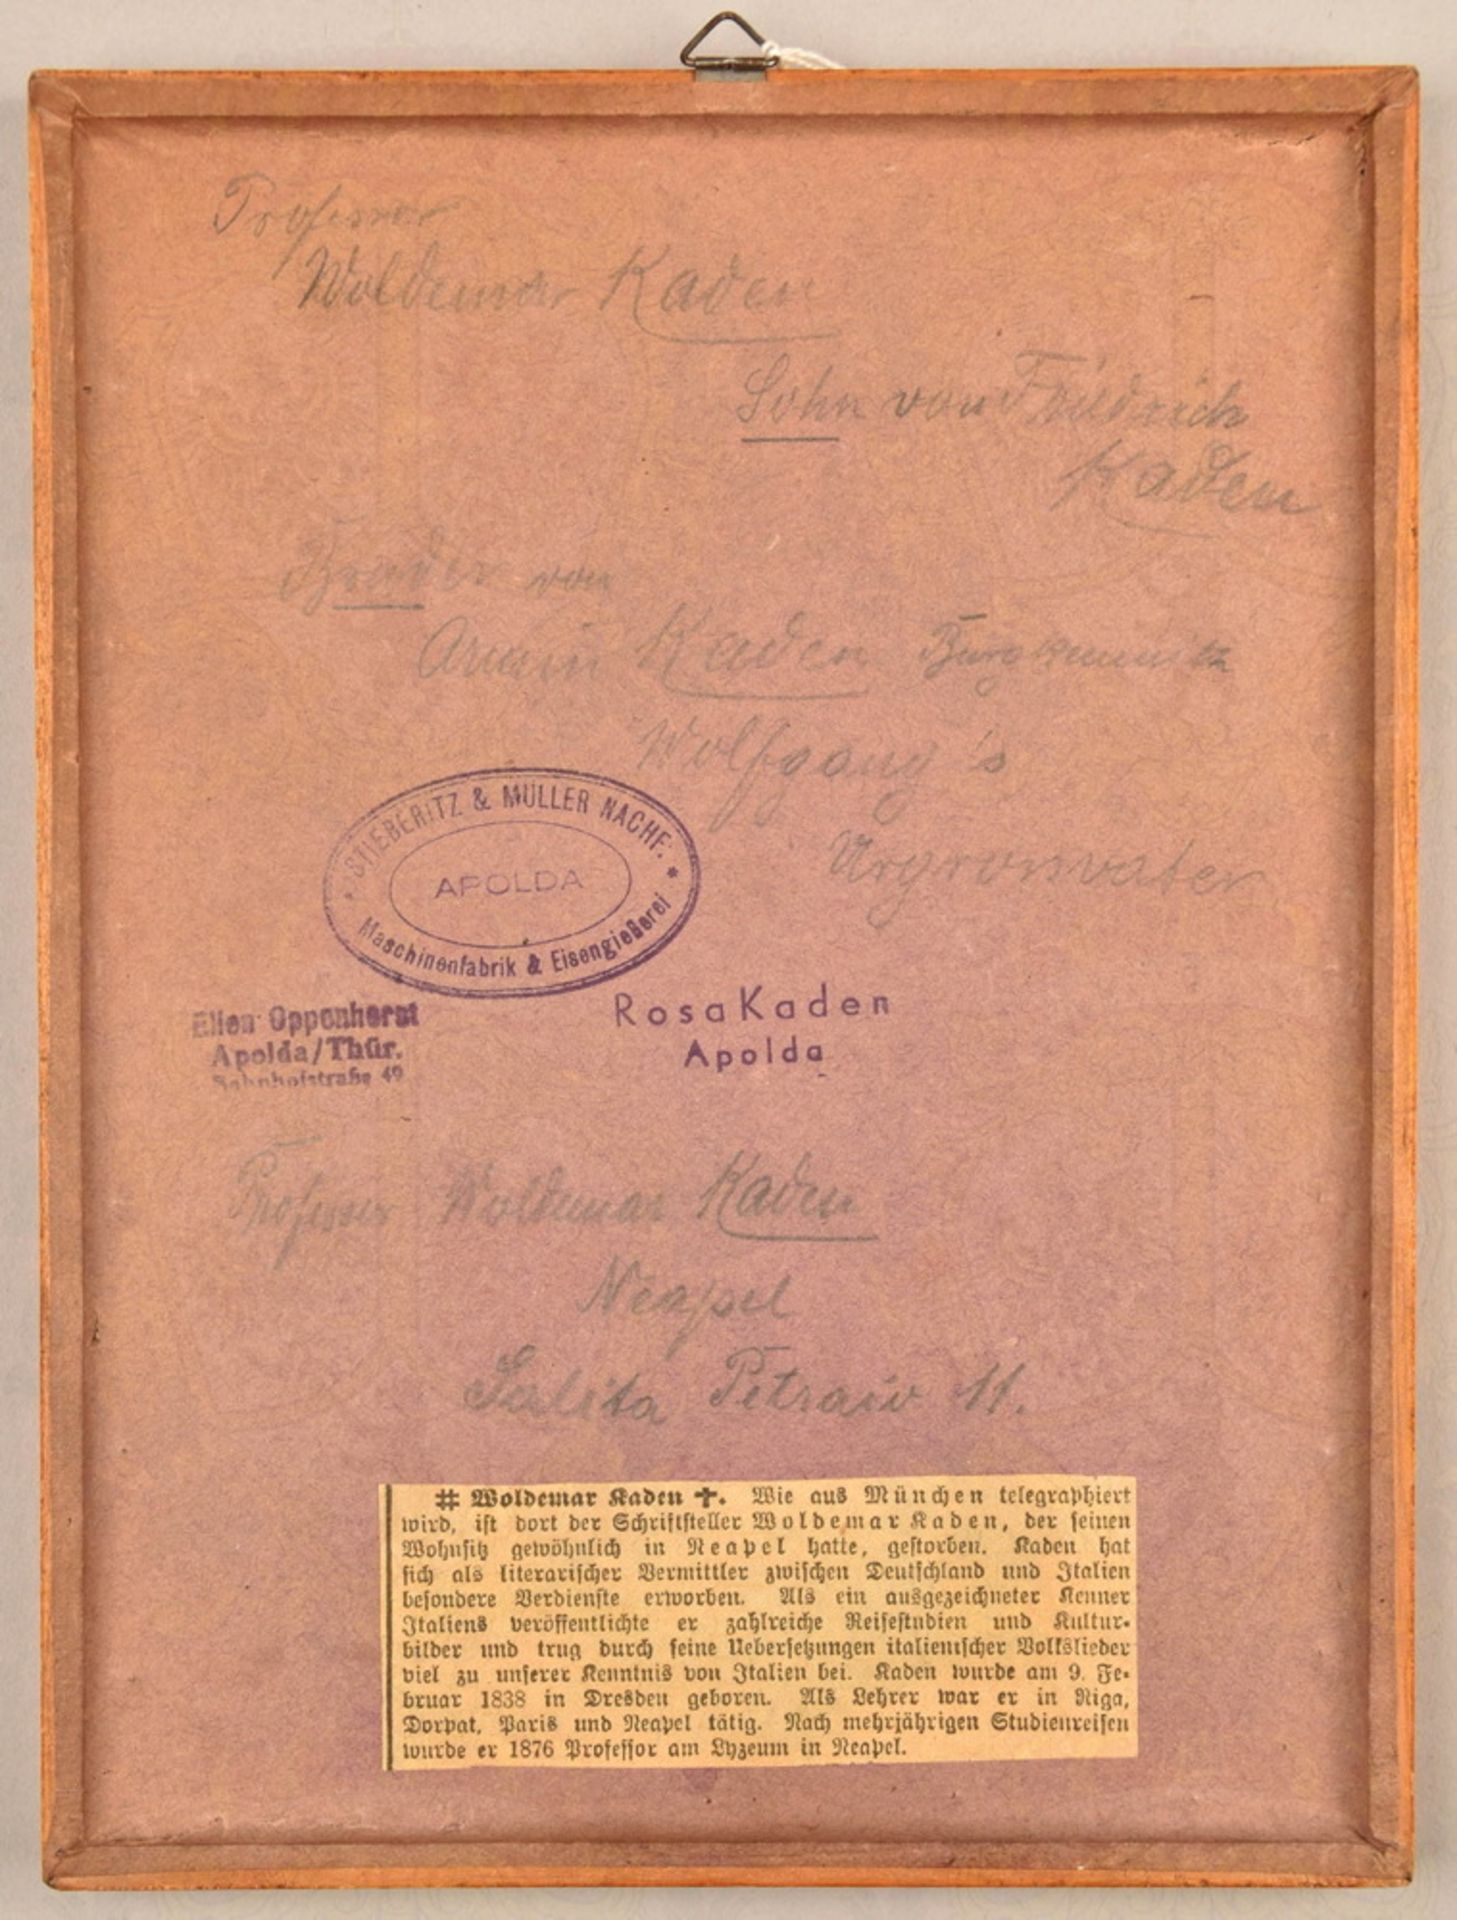 Professor
Woldemar Kaden
Sohn von Friedrich
Kaden
Bruder von
Armin Kaden Burgkemnitz
Wolfgang's
Urgrossvater
* STIEBERITZ & MÜLLER NACHF. *
APOLDA
Maschinenfabrik & Eisengießerei
Rosa Kaden
Apolda
Ellen Oppenhorst
Apolda/Thür.
Bahnhofstraße 49
Professor Woldemar Kaden
Neapel
Salita Petraio 11.
# Woldemar Kaden ✝. Wie aus München telegraphiert
wird, ist dort der Schriftsteller Woldemar Kaden, der seinen
Wohnsitz gewöhnlich in Neapel hatte, gestorben. Kaden hat
sich als literarischer Vermittler zwischen Deutschland und Italien
besondere Verdienste erworben. Als ein ausgezeichneter Kenner
Italiens veröffentlichte er zahlreiche Reisestudien und Kultur-
bilder und trug durch seine Uebersetzungen italienischer Volkslieder
viel zu unserer Kenntnis von Italien bei. Kaden wurde am 9. Fe-
bruar 1838 in Dresden geboren. Als Lehrer war er in Riga,
Dorpat, Paris und Neapel tätig. Nach mehrjährigen Studienreisen
wurde er 1876 Professor am Lyzeum in Neapel.